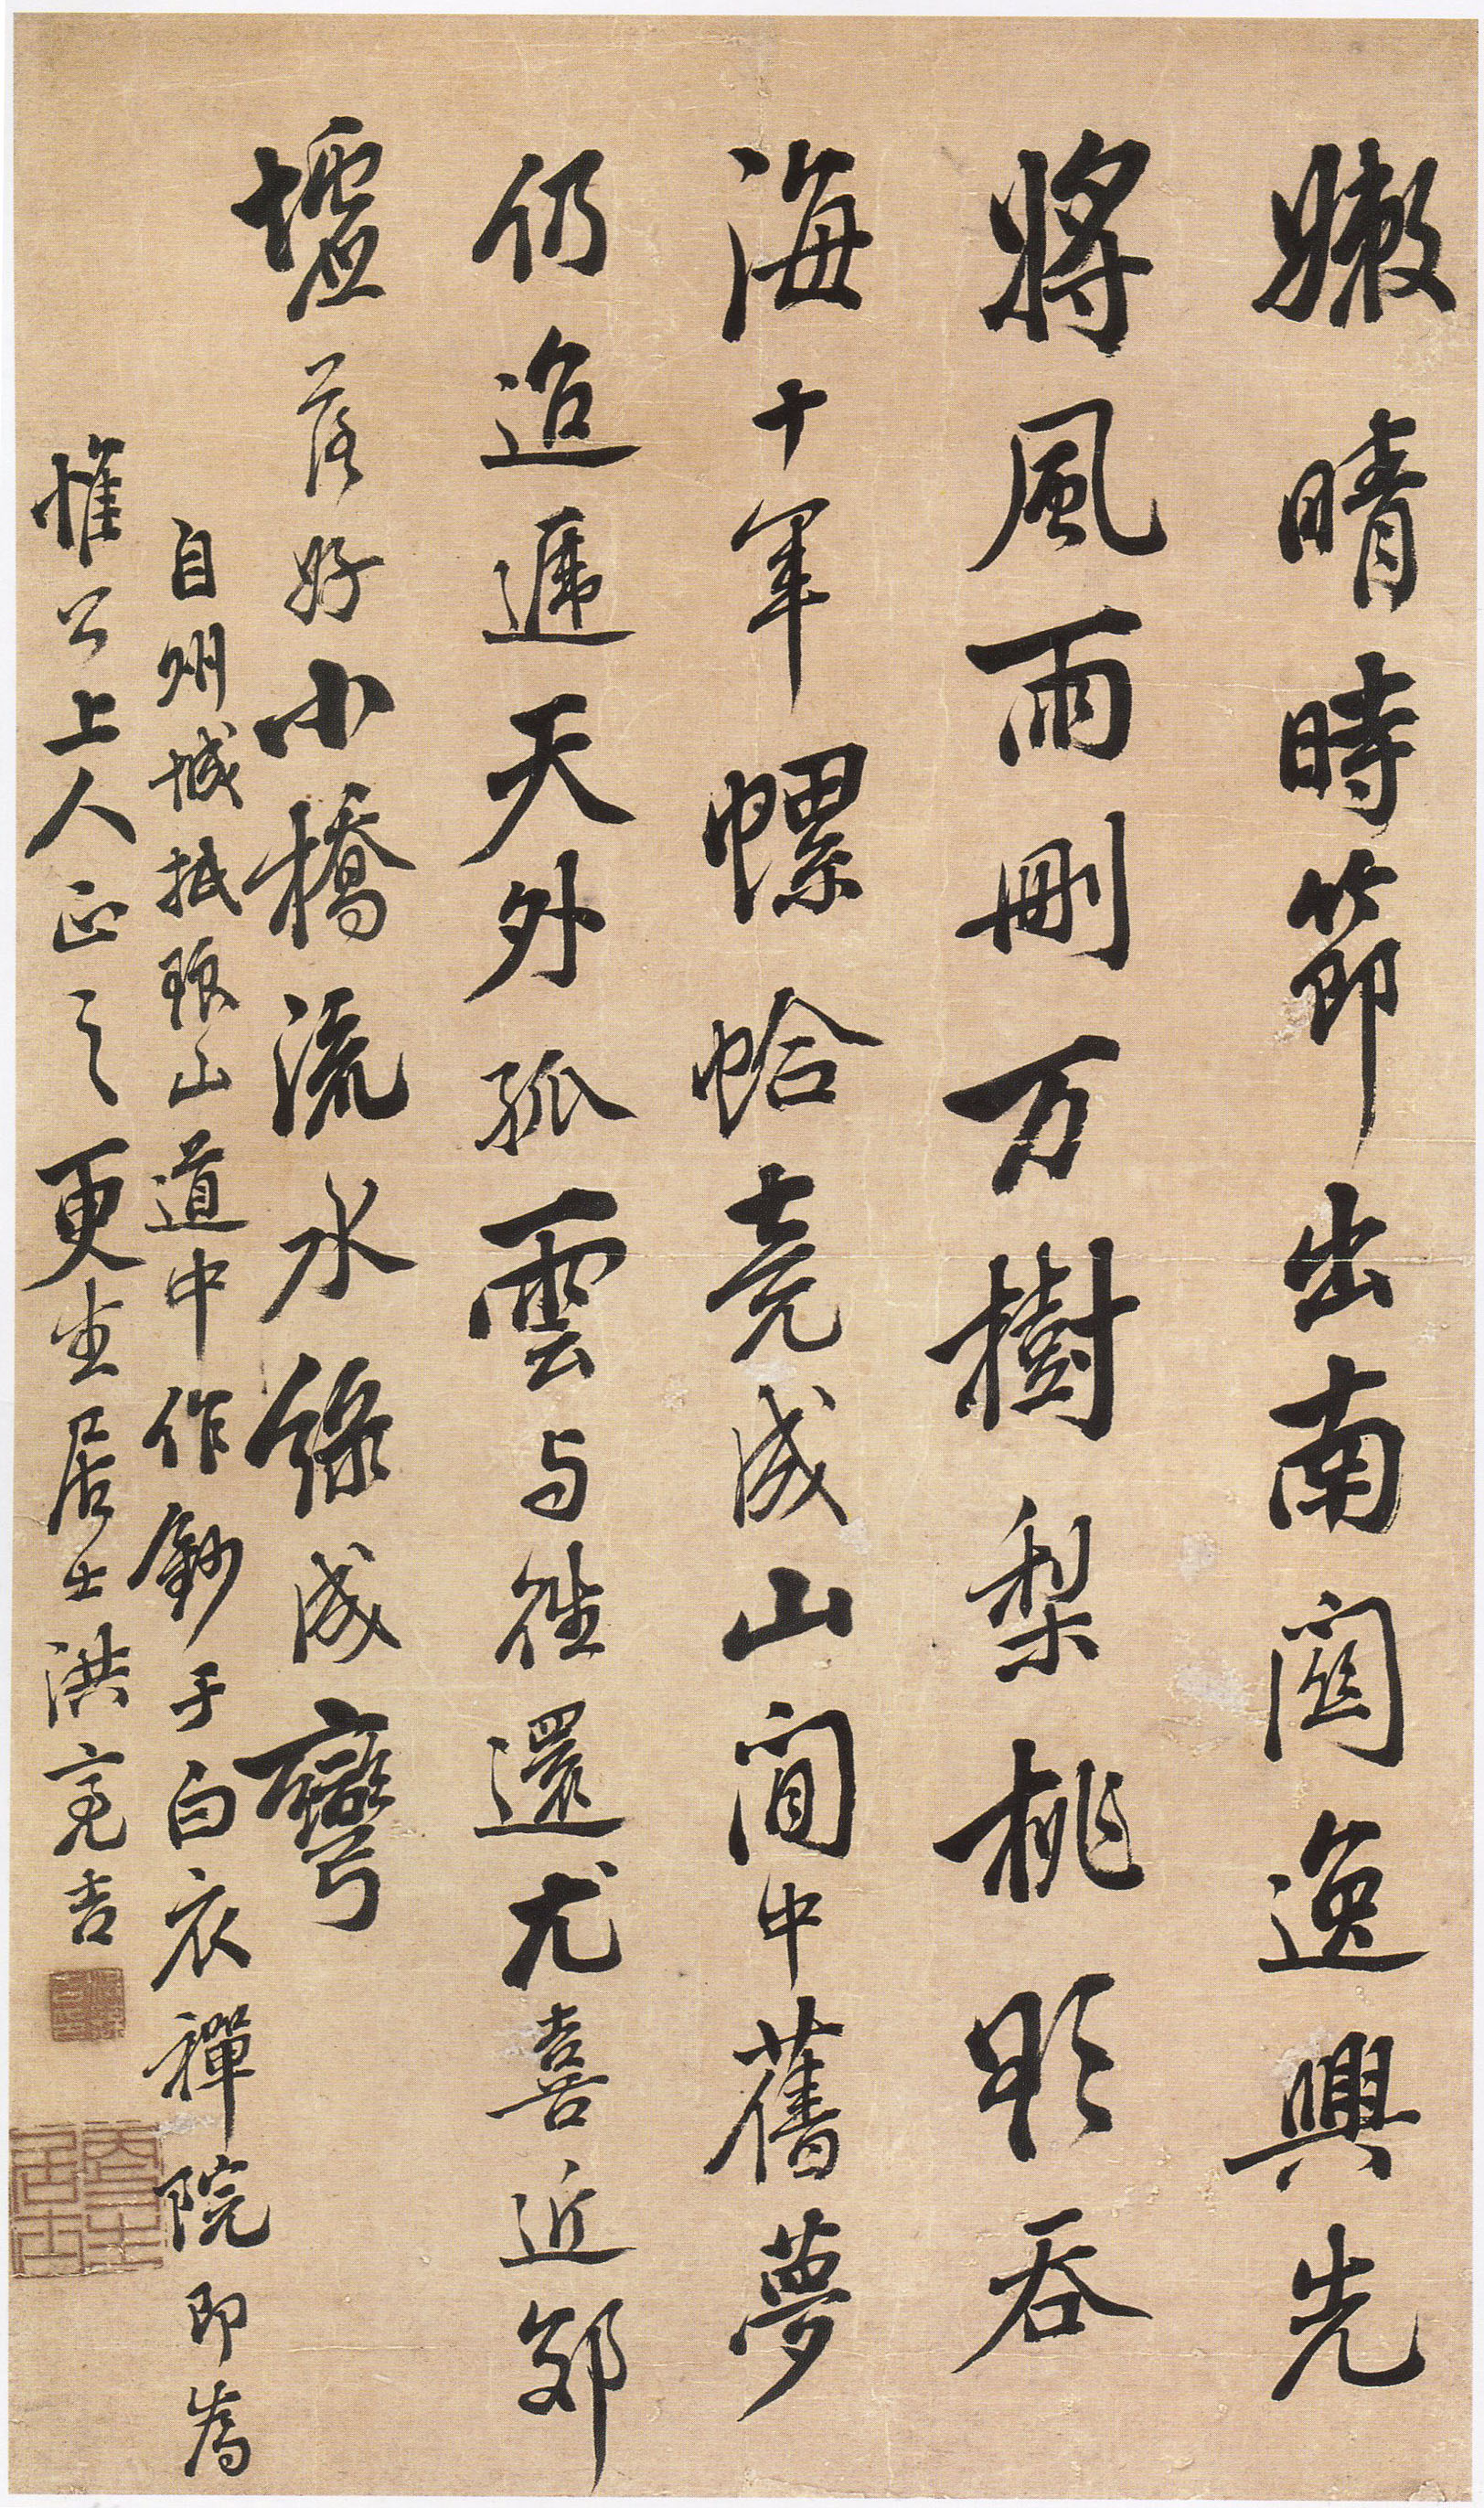 嫩晴時節出南關逸興先
將風雨刪万樹梨桃影吞
海十年螺蛤竟成山閒中舊夢
仍迢遞天外孤雲与往還尤喜近郊
墟落好小橋流水綠成彎
自州城抵琅山道中作鈔于白衣禪院即爲
惟公上人正之更生居士洪亮吉
更生居士